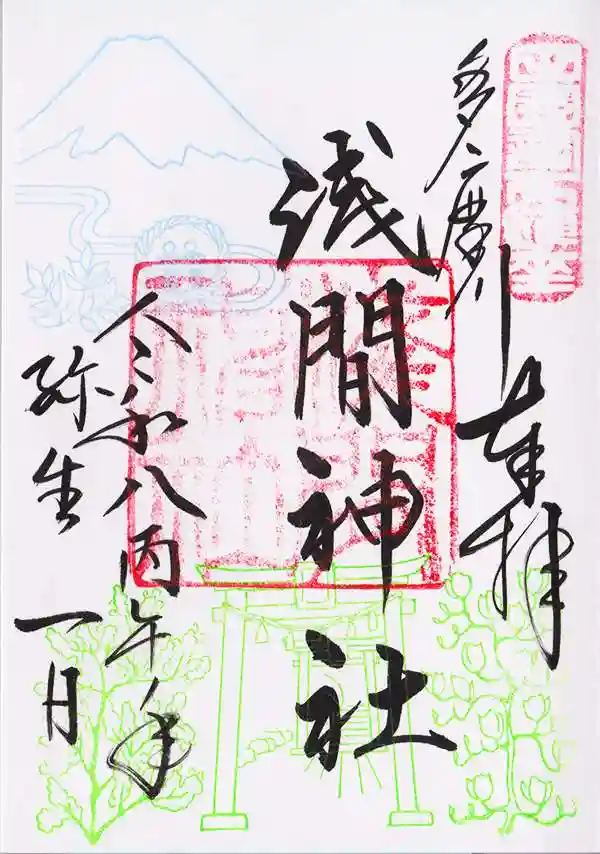 多摩川
奉拝
浅間神社
令和八丙午ノ年
弥生
一日